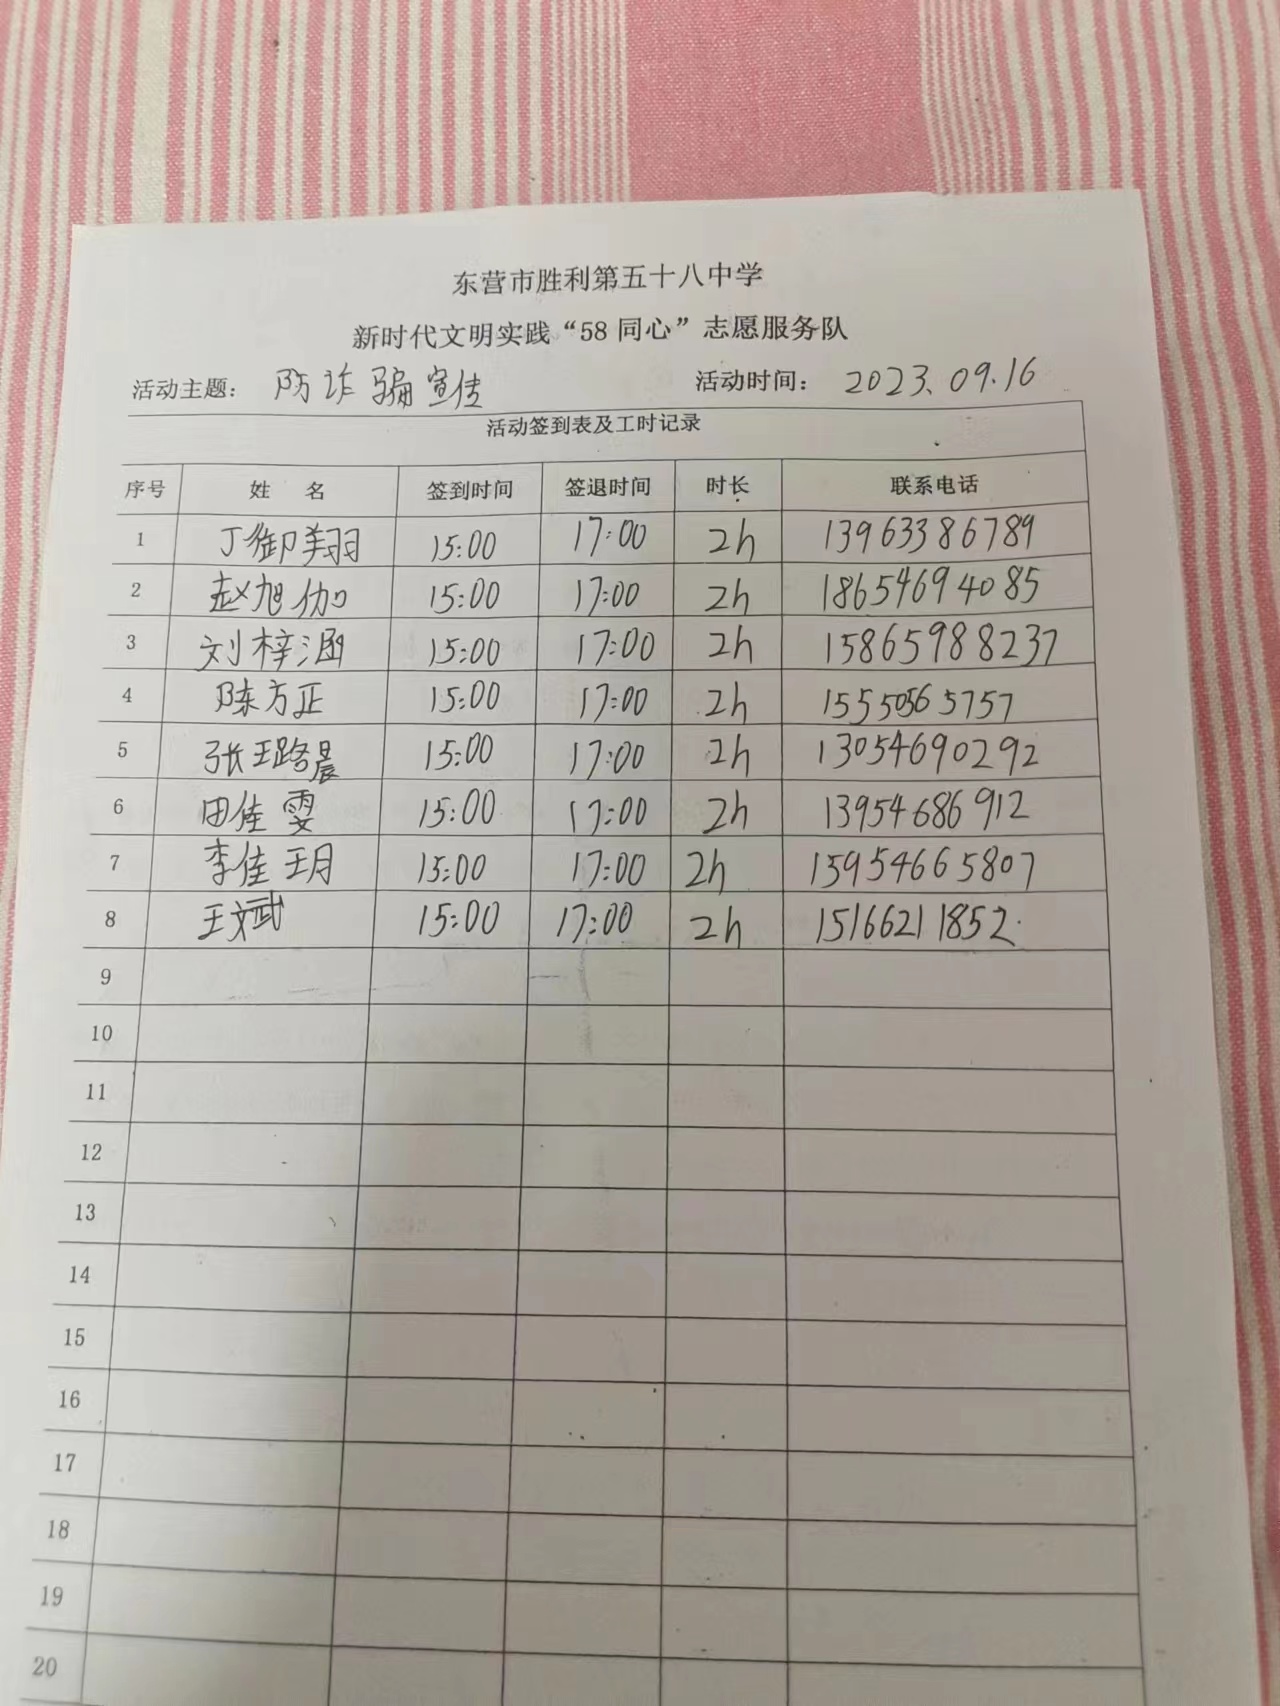 东营市胜利第五十八中学
新时代文明实践“58同心”志愿服务队
活动主题： 防诈骗宣传 活动时间： 2023.09.16
活动签到表及工时记录
序号 姓 名 签到时间 签退时间 时长 联系电话
1 丁御翔 15:00 17:00 2h 13963386789
2 赵旭伽 15:00 17:00 2h 18654694085
3 刘梓涵 15:00 17:00 2h 15865988237
4 陈方正 15:00 17:00 2h 15550565757
5 张璐晨 15:00 17:00 2h 13054690292
6 田佳雯 15:00 17:00 2h 13954686912
7 李佳玥 15:00 17:00 2h 15954665807
8 王斌 15:00 17:00 2h 15166211852
9
10
11
12
13
14
15
16
17
18
19
20